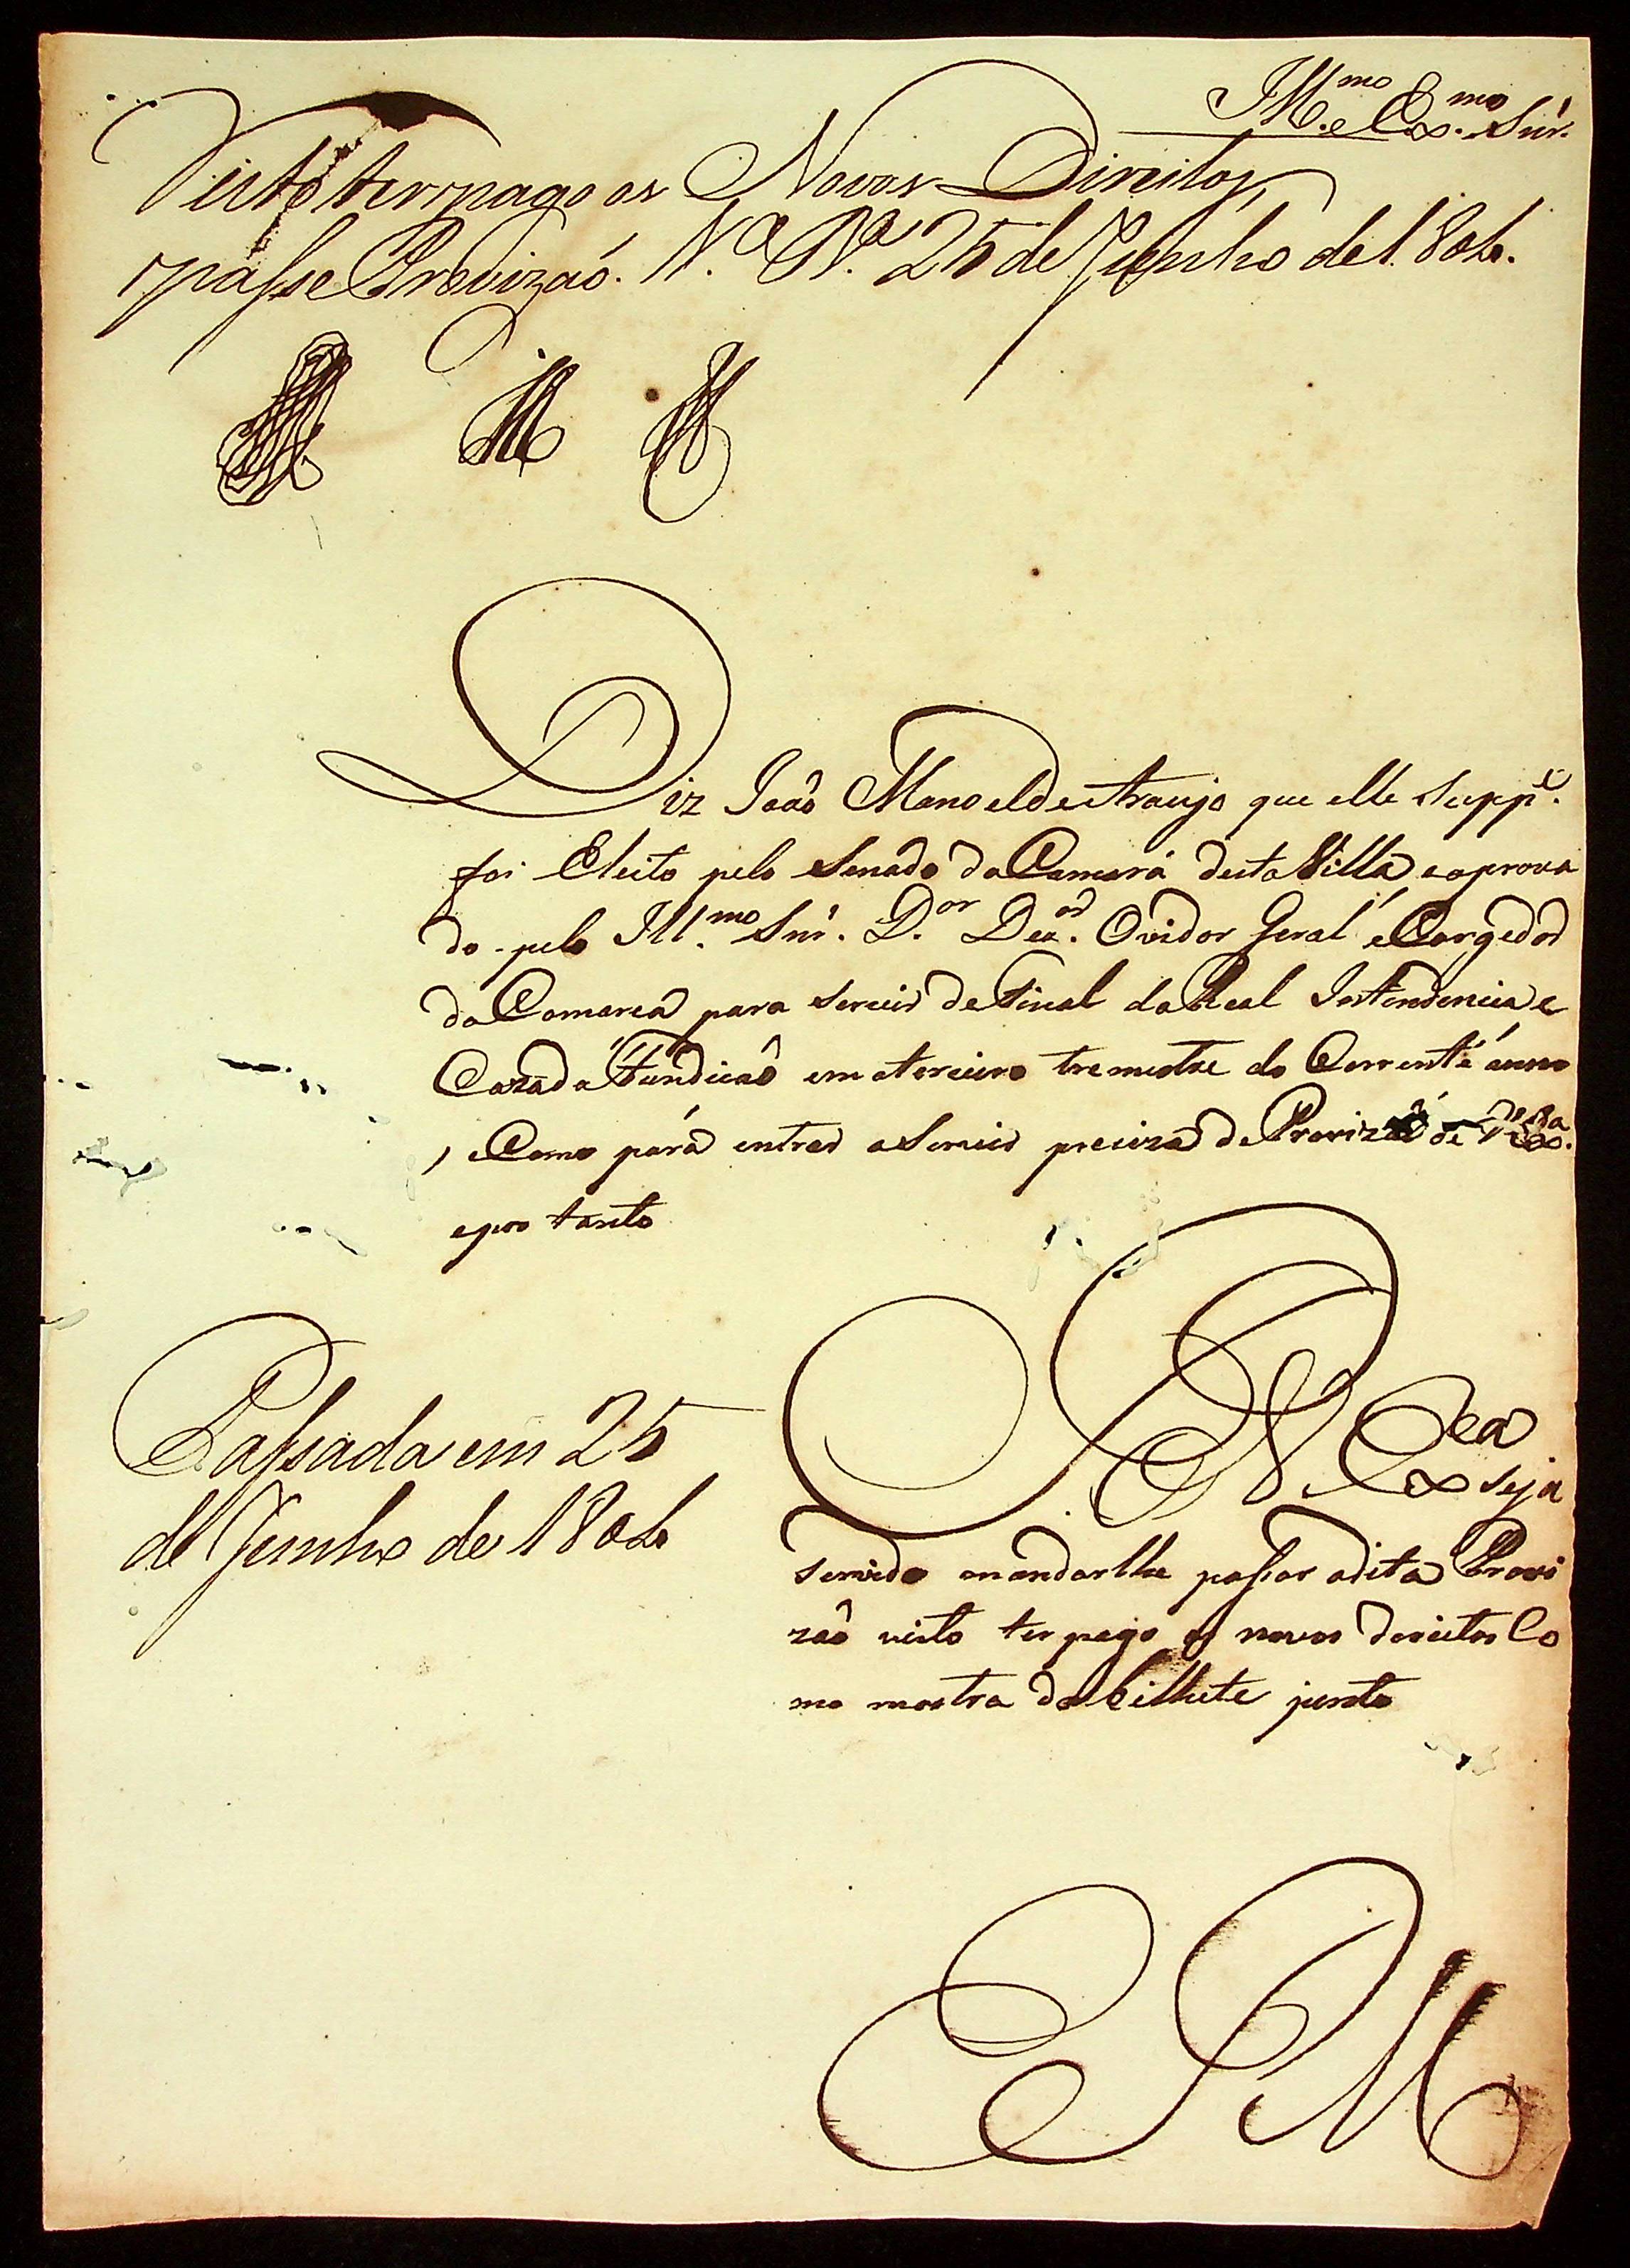 Ill.mo e Ex.mo Snr.
Visto ter pago os Novos Direitos
passe Provizaõ. V.a R.a 25 de Junho de 1804.
Diz Joaõ Manoel de Araujo que elle Supp.e
foi Eleito pelo Senado da Camara desta Villa e aprova
do pelo Ill.mo Snr. D.or Dez.or Ovidor Geral e Corgedor
da Comarca para servir de Fiscal da Real Intendencia e
Caza da Fundicaõ em o terceiro tremestre do Corrente anno
, e Como pará entrar a Servir preciza de Provizaõ de V. Ex.a
e por tanto
P. a V. Ex.cia seja
servido mandarlhe passar a dita Provi
zaõ visto ter pago os novos dereitos Co
mo mostra do bilhete junto
Passada em 25
de Junho de 1804
E R M